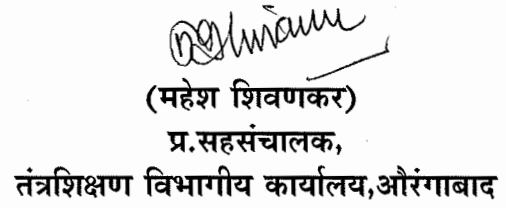 (महेश शिवणकर)
प्र.सहसंचालक,
तंत्रशिक्षण विभागीय कार्यालय,औरंगाबाद